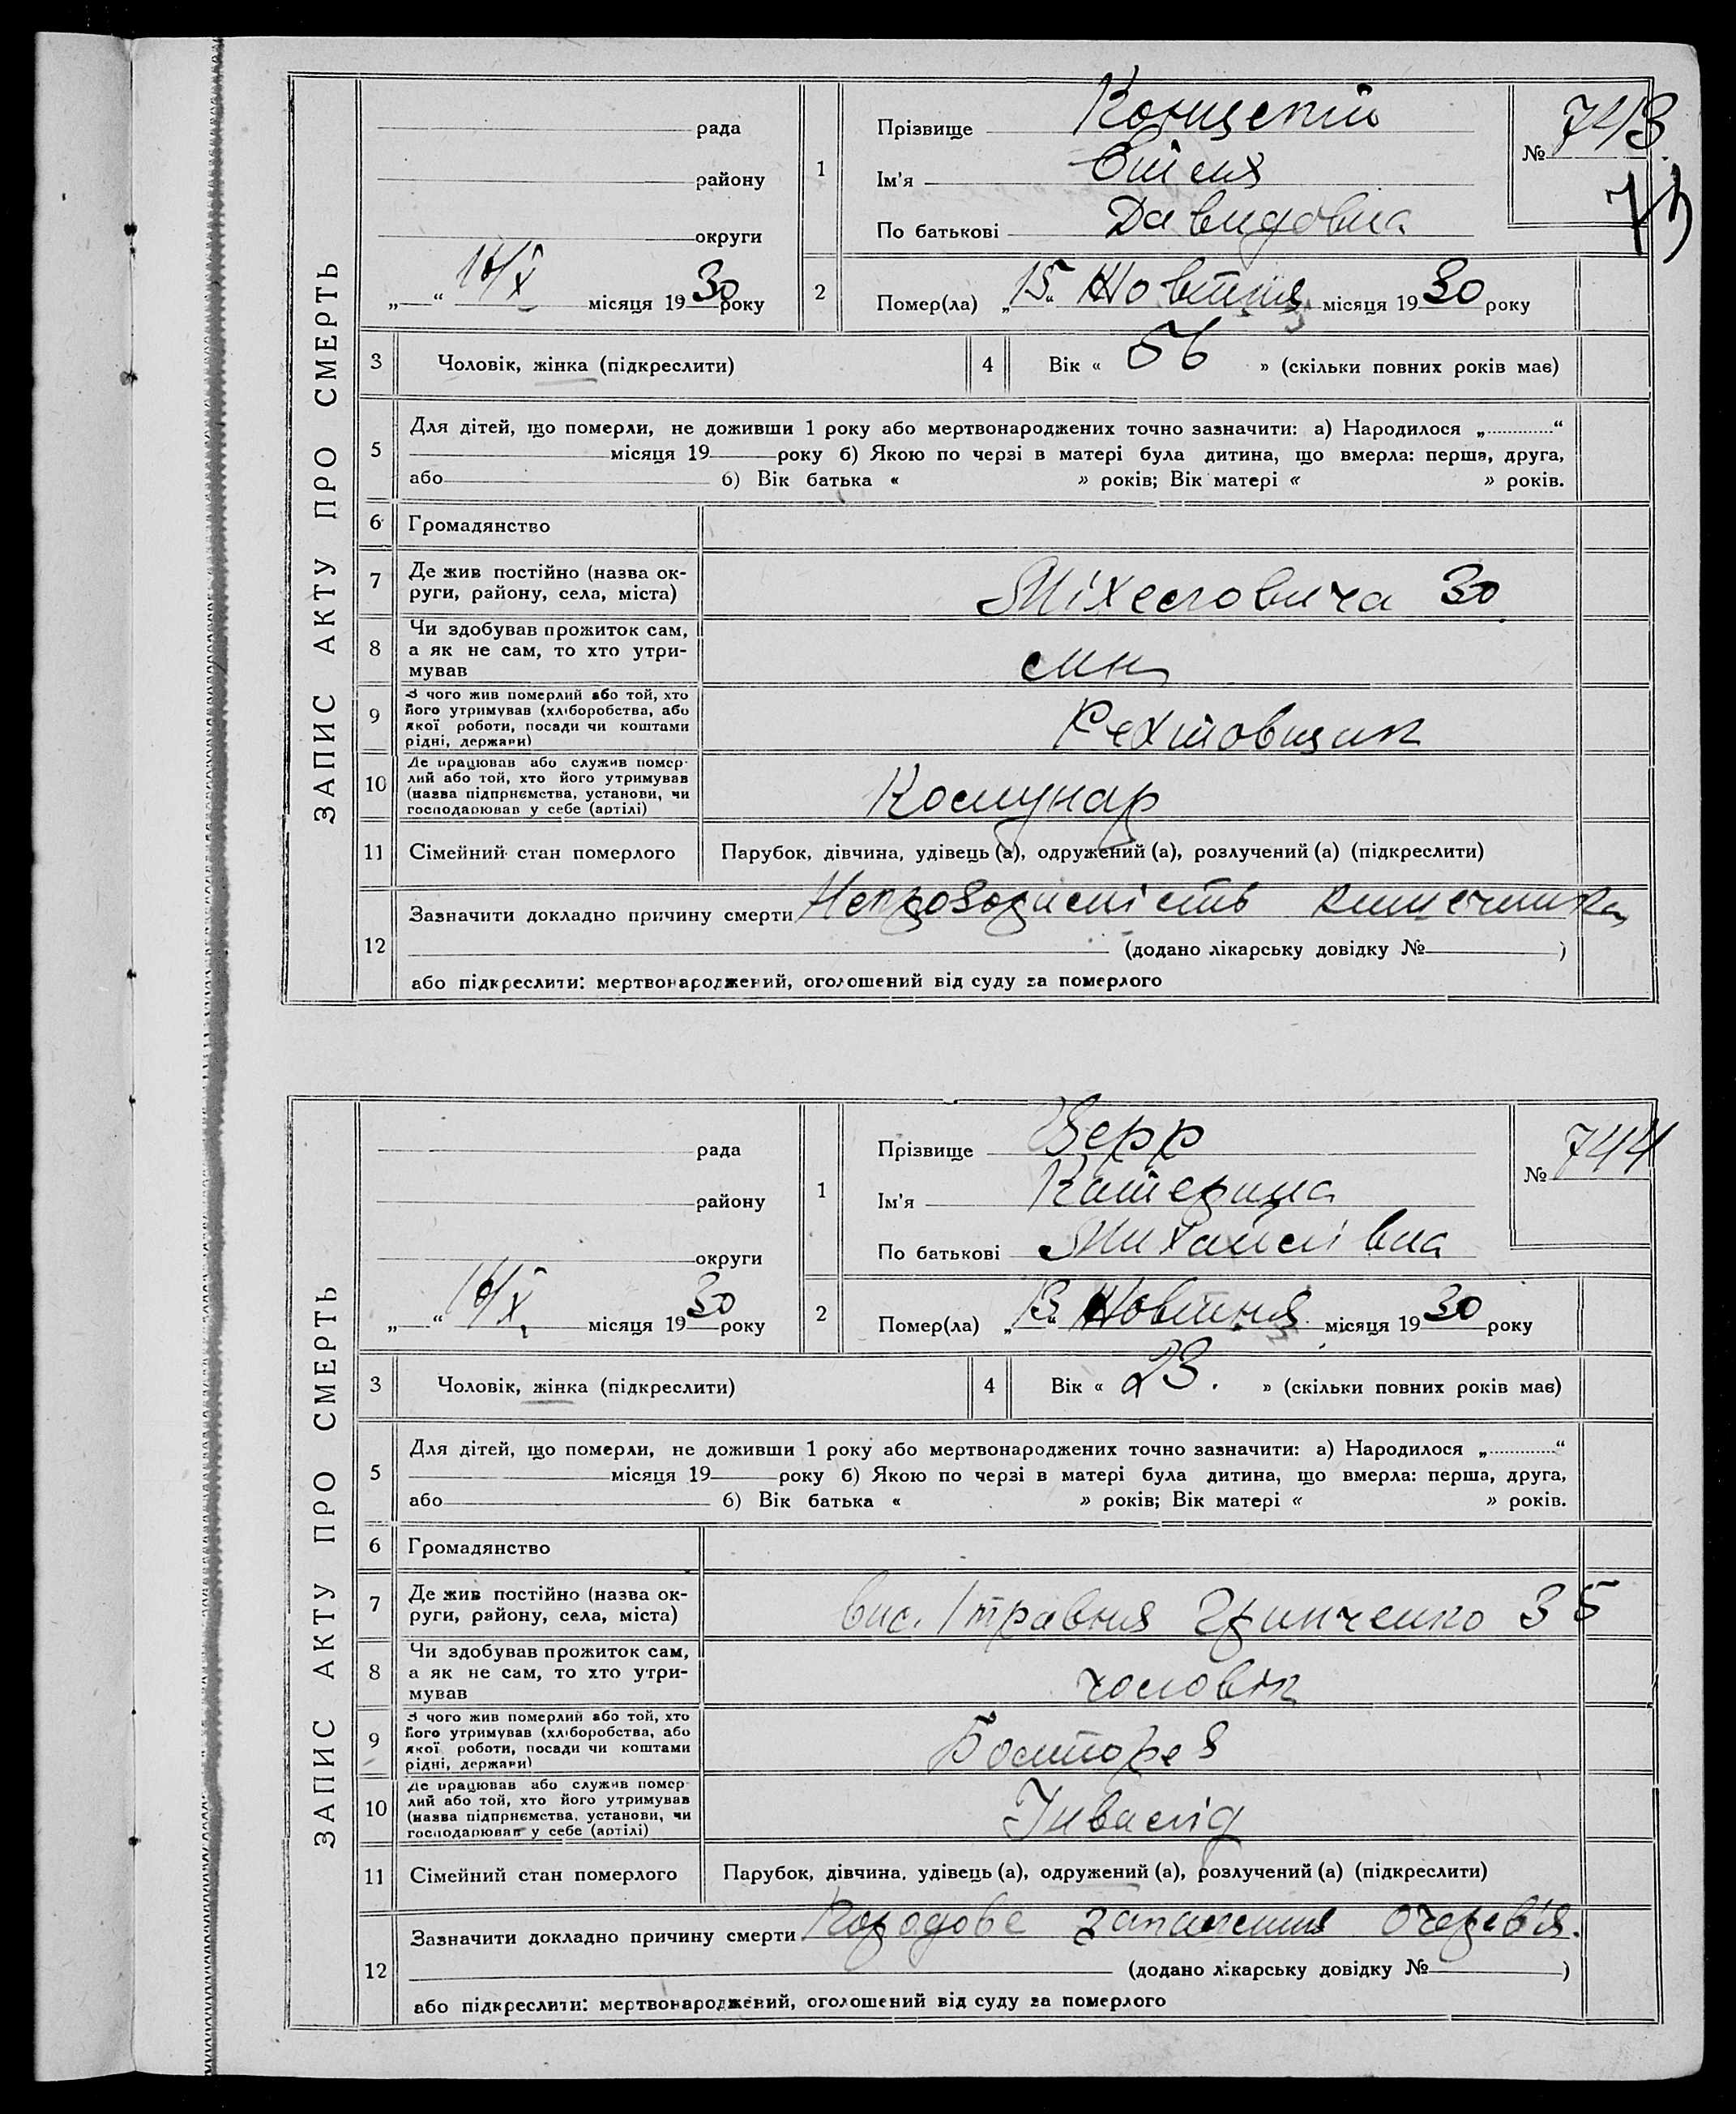 ЗАПИС АКТУ ПРО СМЕРТЬ
рада
району
округи
„ “ 16/X місяця 1930 року
1
Прізвище
Ім'я
По батькові Давидовна
№ 743
73
2
Помер(ла) „15“ Жовтня місяця 1930 року
3
Чоловік, жінка (підкреслити)
4
Вік « 56 » (скільки повних років має)
5
Для дітей, що померли, не доживши 1 року або мертвонароджених точно зазначити: а) Народилося „ “
місяця 19 року б) Якою по черзі в матері була дитина, що вмерла: перша, друга,
або б) Вік батька « » років; Вік матері « » років.
6
Громадянство
7
Де жив постійно (назва ок-
руги, району, села, міста)
Міхеловича 30
8
Чи здобував прожиток сам,
а як не сам, то хто утри-
мував
син
9
З чого жив померлий або той, хто
його утримував (хліборобства, або
якої роботи, посади чи коштами
рідні, держави)
10
Де працював або служив помер-
лий або той, хто його утримував
(назва підприємства, установи, чи
господарював у себе (артілі)
Комунар
11
Сімейний стан померлого
Парубок, дівчина, удівець (а), одружений (а), розлучений (а) (підкреслити)
12
Зазначити докладно причину смерти Непроводимість кишечника
(додано лікарську довідку № )
або підкреслити: мертвонароджений, оголошений від суду за померлого
ЗАПИС АКТУ ПРО СМЕРТЬ
рада
району
округи
„ “ 16/X місяця 1930 року
1
Прізвище Церр
Ім'я Катерина
По батькові Михайлівна
№ 744
2
Помер(ла) „13“ Жовтня місяця 1930 року
3
Чоловік, жінка (підкреслити)
4
Вік « 23. » (скільки повних років має)
5
Для дітей, що померли, не доживши 1 року або мертвонароджених точно зазначити: а) Народилося „ “
місяця 19 року б) Якою по черзі в матері була дитина, що вмерла: перша, друга,
або б) Вік батька « » років; Вік матері « » років.
6
Громадянство
7
Де жив постійно (назва ок-
руги, району, села, міста)
вис. 1 травня Грінченко 35
8
Чи здобував прожиток сам,
а як не сам, то хто утри-
мував
чоловік
9
З чого жив померлий або той, хто
його утримував (хліборобства, або
якої роботи, посади чи коштами
рідні, держави)
10
Де працював або служив помер-
лий або той, хто його утримував
(назва підприємства, установи, чи
господарював у себе (артілі)
Інвалід
11
Сімейний стан померлого
Парубок, дівчина, удівець (а), одружений (а), розлучений (а) (підкреслити)
12
Зазначити докладно причину смерти Породове запалення очерев'я.
(додано лікарську довідку № )
або підкреслити: мертвонароджений, оголошений від суду за померлого